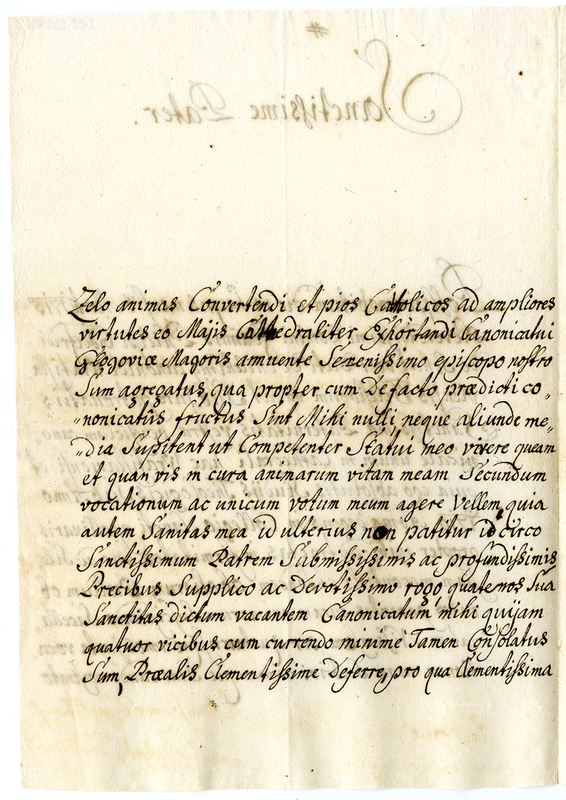 Zelo animas Convertendi et pios Catholicos ad ampliores
virtutes eo Majis Cathedraliter Exhortandi Canonicatui
Glogoviæ Magoris annuente Serenissimo episcopo nostro
Sum agregatus, qua propter cum De facto prædicti ca„
„nonicatûs fructus Sint Mihi nulli neque aliunde me„
„dia Supitent ut Competenter Statui meo vivere queam
et quan vis in cura animarum vitam meam Secundum
vocationum ac unicum votum meum agere Vellem, quia
autem Sanitas mea id ulterius non patitur id circo
Sanctissimum Patrem Submississimis ac profundissimis
Precibus Supplico ac Devotissimo rogo quatenos Sua
Sanctitas dictum vacantem Canonicatum mihi quijam
quatuor vicibus cum currendo minime Tamen Consolatus
Sum, Præalis Clementissime Deferre, pro qua Clementissima